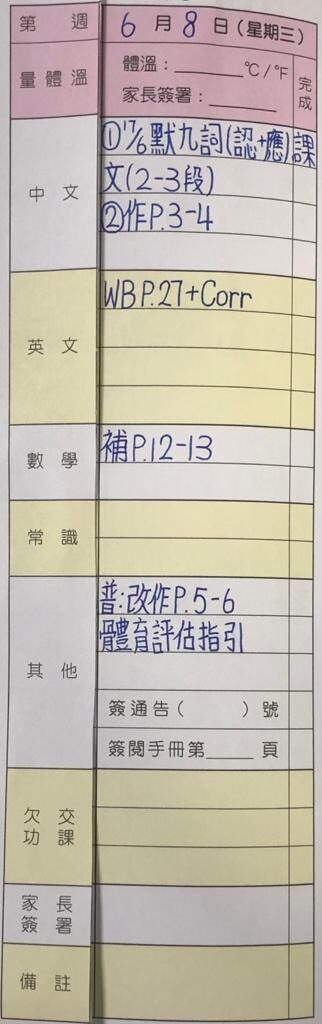 第 週 6月8日(星期三)
量體溫 體溫:______°C/°F 完成
家長簽署:______
中文 ①17/6默九詞(認+應)課
文(2-3段)
②作P.3-4
英文 WB P.27+Corr
數學 補P.12-13
常識
其他 普:改作P.5-6
體育評估指引
簽通告( )號
簽閱手冊第____頁
欠交
功課
家長
簽署
備註